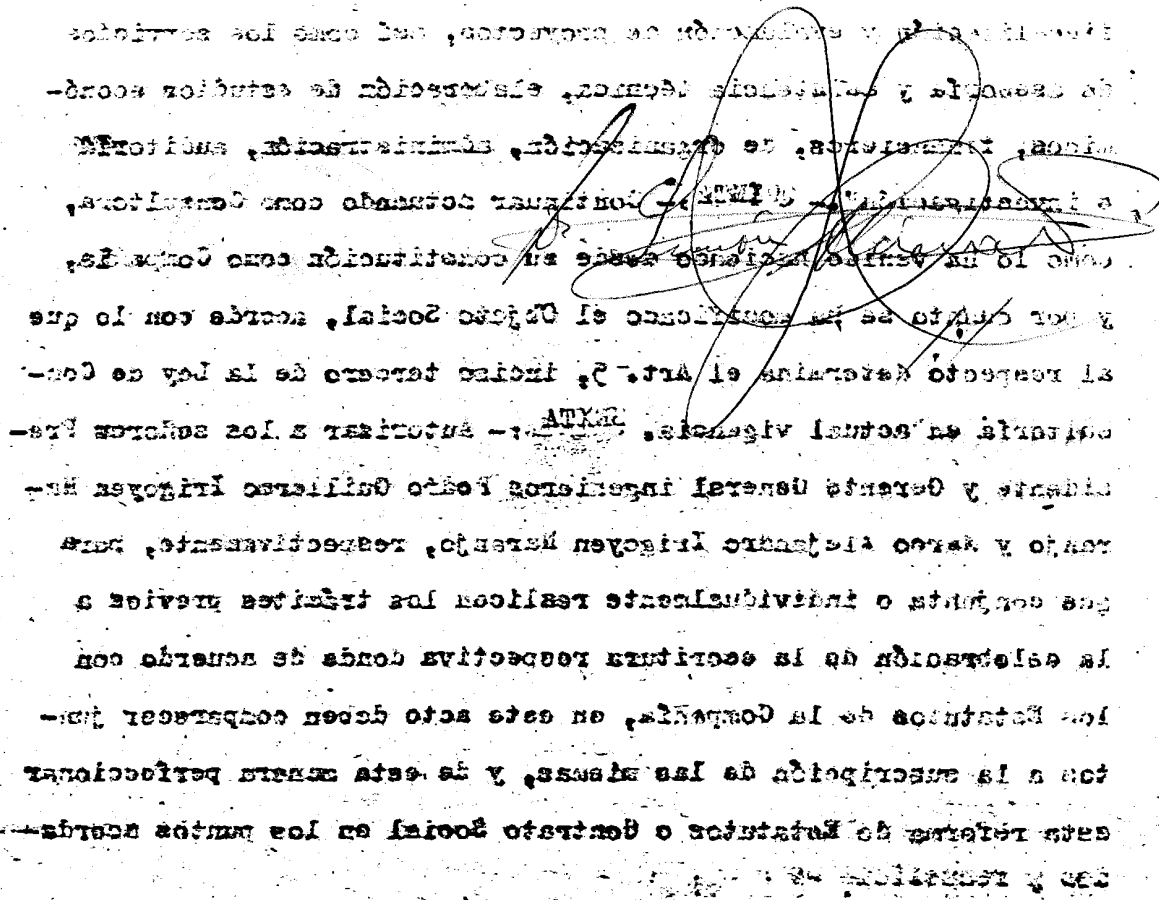 fiscalización y evaluación de proyectos, así como los servicios
de asesoría y asistencia técnica, elaboración de estudios econó-
micos, financieros, de organización, administración, auditoría
e investigación". QUINTA.- Continuar actuando como Consultora,
como lo ha venido haciendo desde su constitución como Compañía,
y por cuanto se ha modificado el Objeto Social, acorde con lo que
al respecto determina el Art. 5, inciso tercero de la Ley de Con-
sultoría en actual vigencia. SEXTA.- Autorizar a los señores Pre-
sidente y Gerente General ingenieros Pedro Guillermo Irigoyen Na-
ranjo y Marco Alejandro Irigoyen Naranjo, respectivamente, para
que conjunta o individualmente realicen los trámites previos a
la celebración de la escritura respectiva donde de acuerdo con
los Estatutos de la Compañía, en este acto deben comparecer jun-
tos a la suscripción de las mismas, y de esta manera perfeccionar
esta reforma de Estatutos o Contrato Social en los puntos acorda-
dos y